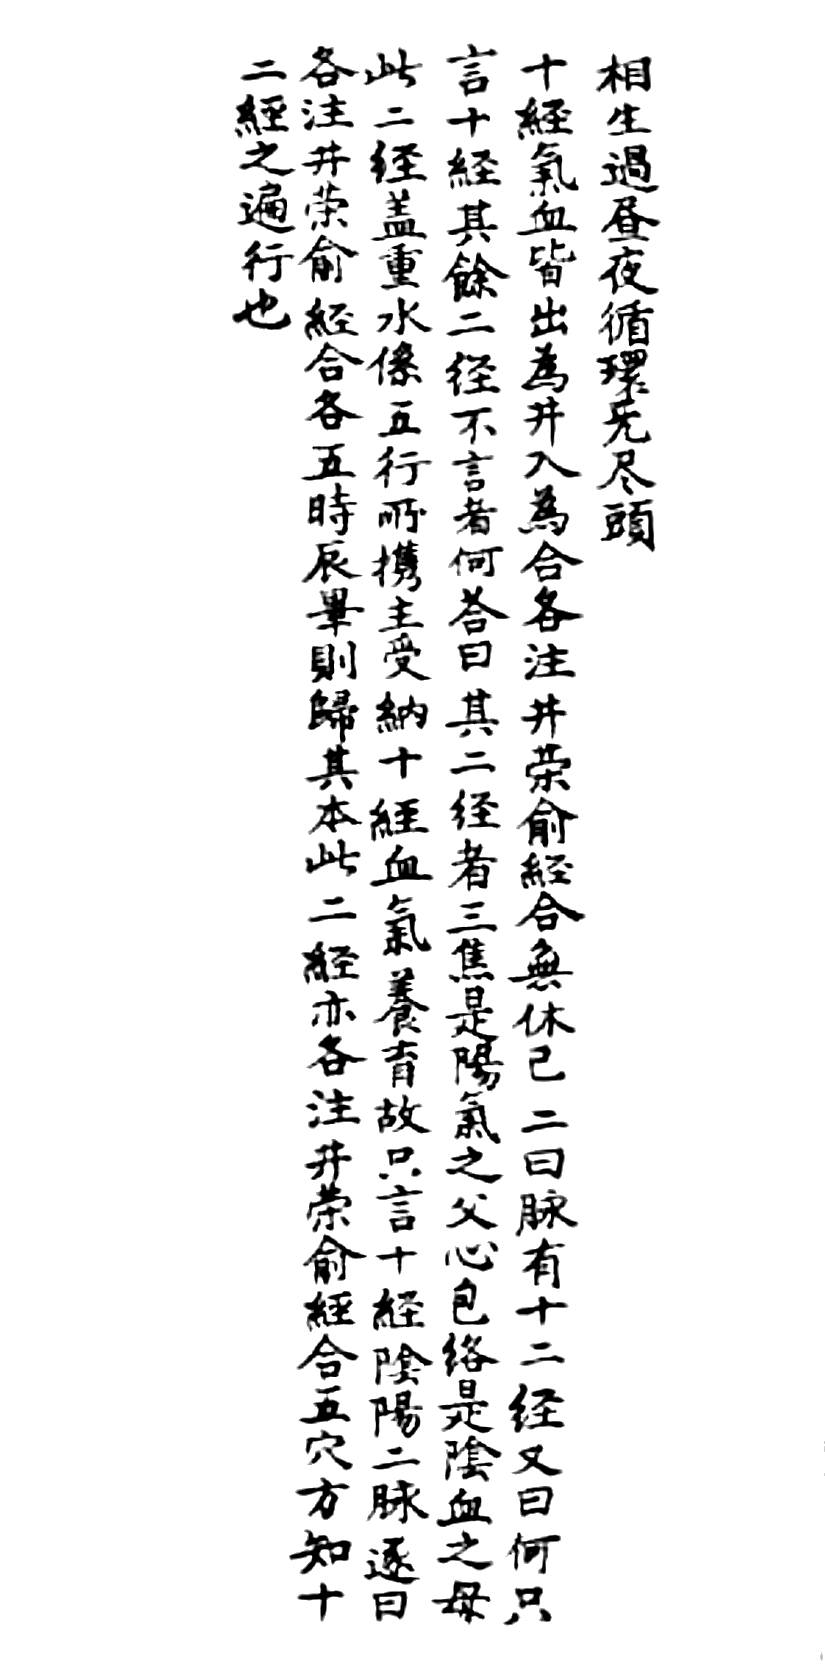 相生過昼夜循環无尽頭
十経氣血皆出為井入為合各注井荣俞経合無休已二曰脉有十二経又曰何只
言十経其餘二径不言者何荅曰其二径者三焦是陽氣之父心包络是陰血之母
此二経盖重水係五行所携主受納十経血氣養育故只言十経陰陽二脉逐日
各注井荣俞経合各五時辰畢則歸其本此二経亦各注井荣俞経合五穴方知十
二經之遍行也